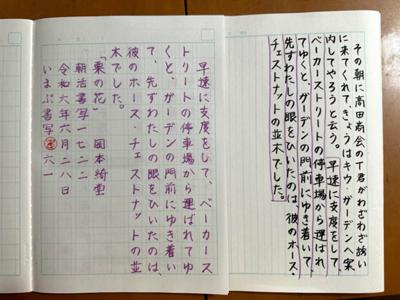 その朝に高田商会のT君がわざわざ誘い
に来てくれて、きょうはキウ・ガーデンへ案
内してやろうと云う。早速に支度をして、
ベーカーストリートの停車場から運ばれ
てゆくと、ガーデンの門前にゆき着いて、
先ずわたしの眼をひいたのは、彼のホース・
チェストナットの並木でした。
早速に支度をして、ベーカース
トリートの停車場から運ばれてゆ
くと、ガーデンの門前にゆき着い
て、先ずわたしの眼をひいたのは、
彼のホース・チェストナットの並
木でした。
「栗の花」 岡本綺堂
朝活書写一七二二
令和六年六月二八日
いまぷ書写六一